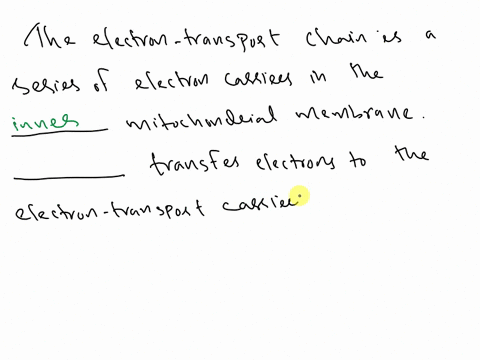 The electron-transport chain is a
series of electron carriers in the
inner mitochondrial membrane.
transfer electrons to the
electron-transport carrier